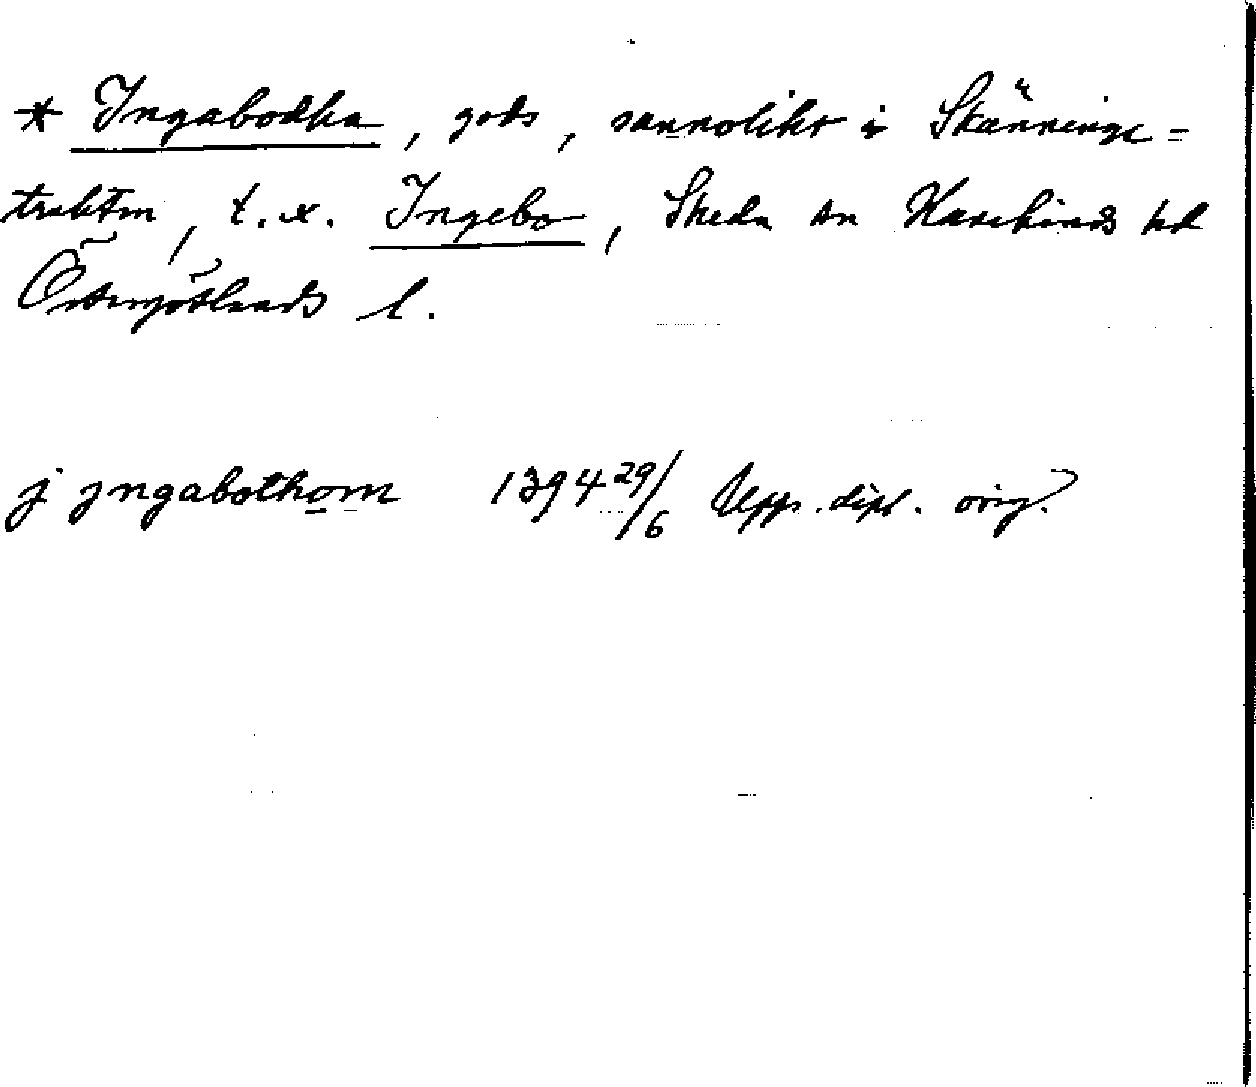 * Ingabodha, gods, sannolikt i Skänninge=
trakten, t.ex. Ingebo, Skeda sn Hanekinds hd
Östergötlands l.
j yngabothom 1394 29/6 Upps. dipl. orig.